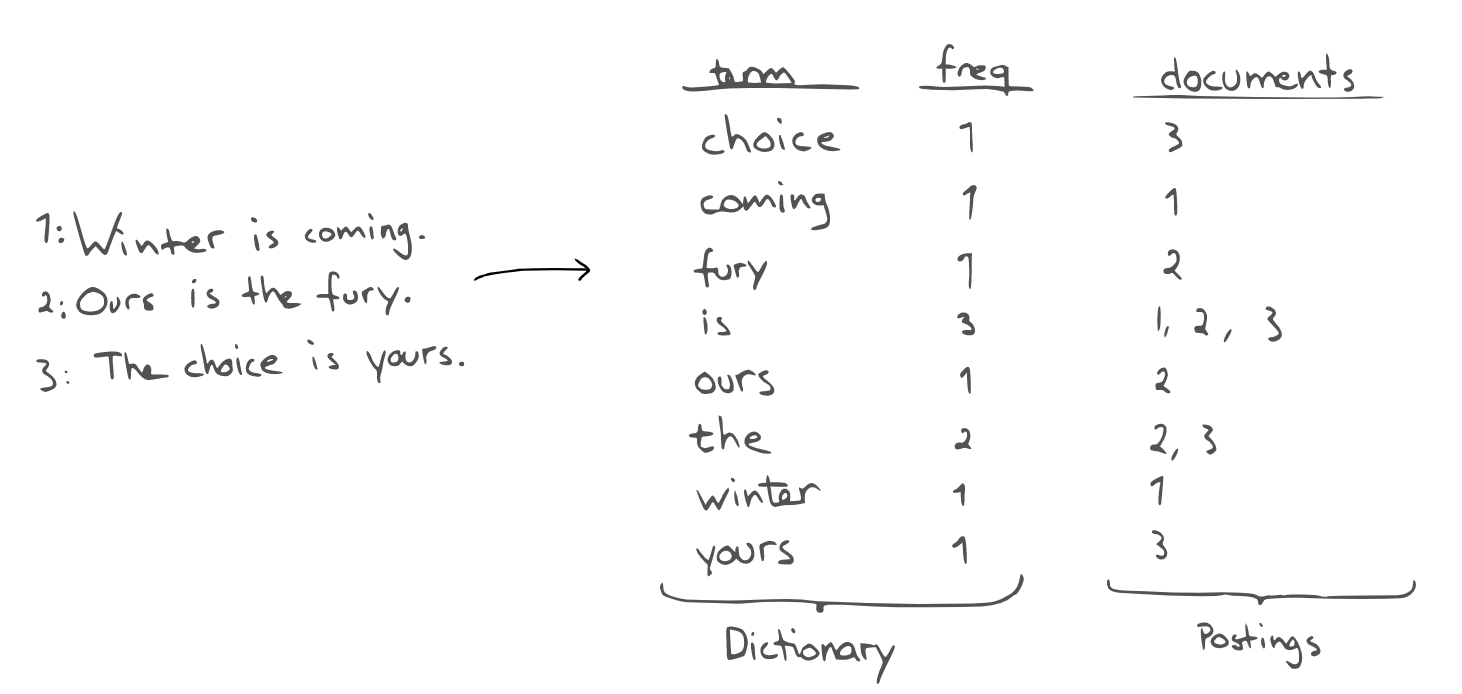 1: Winter is coming.
2: Ours is the fury.
3: The choice is yours.
term freq documents
choice 1 3
coming 1 1
fury 1 2
is 3 1, 2, 3
ours 1 2
the 2 2, 3
winter 1 1
yours 1 3
Dictionary Postings